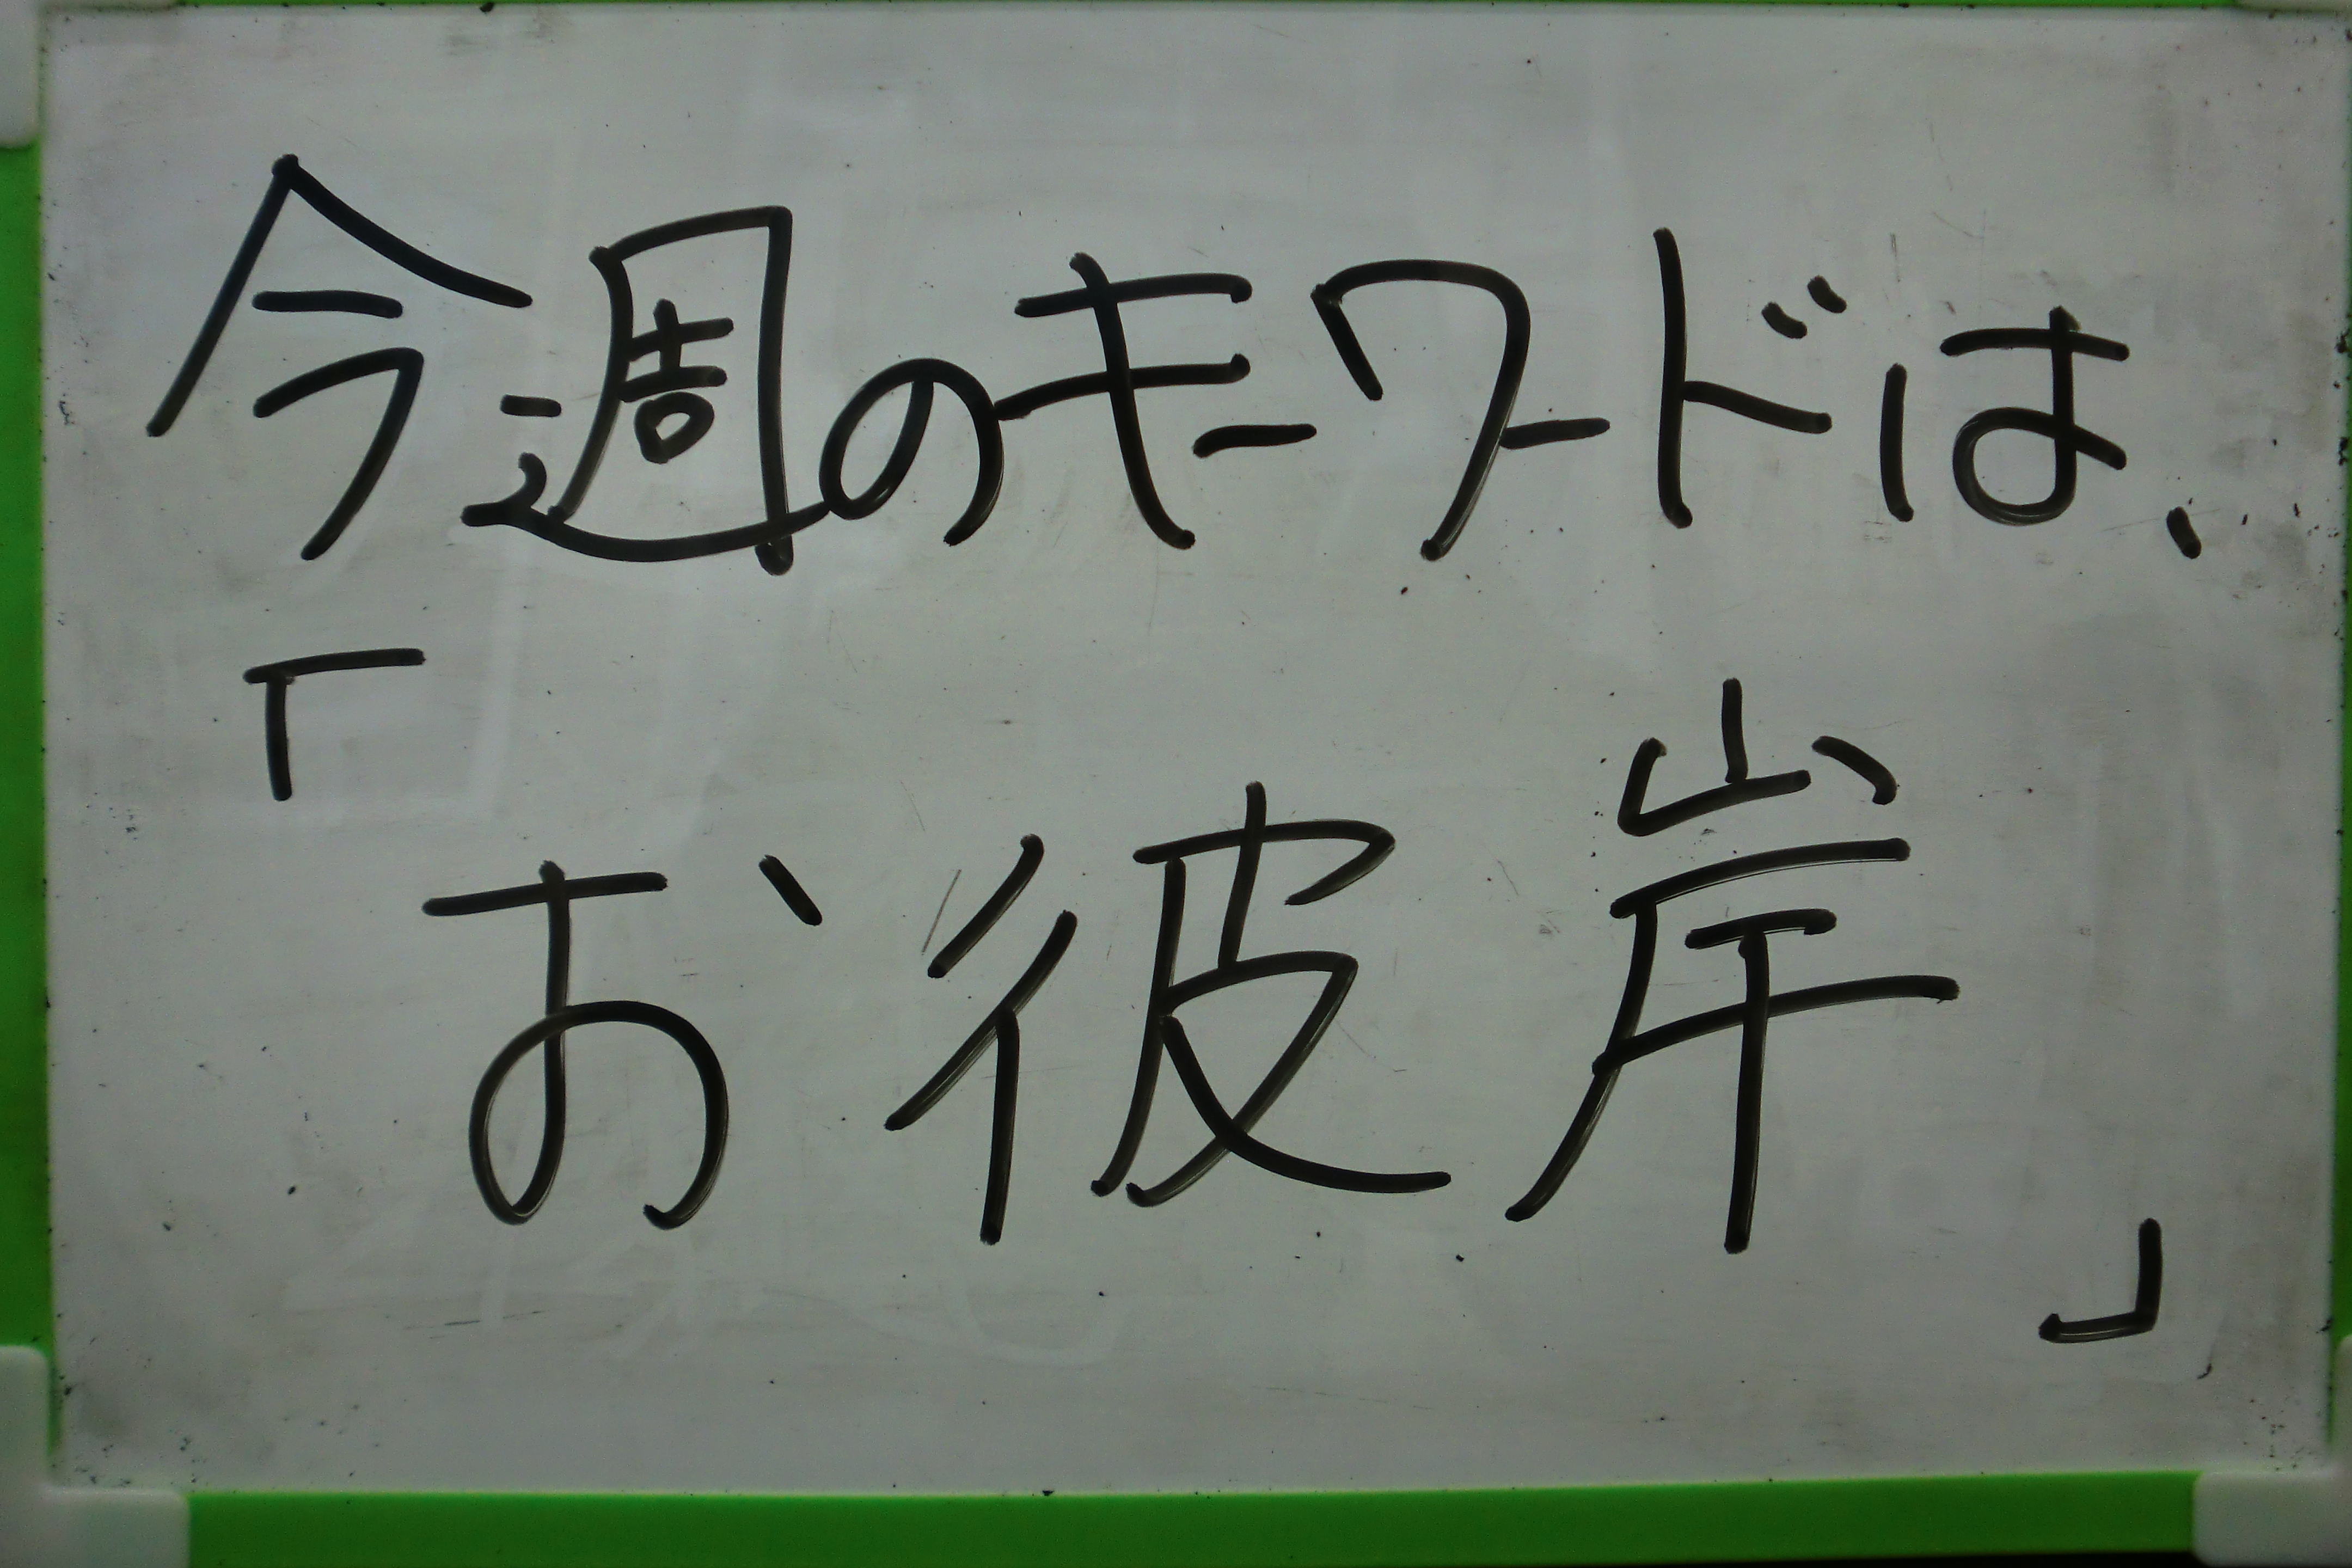 今週のキーワードは、
「お彼岸」